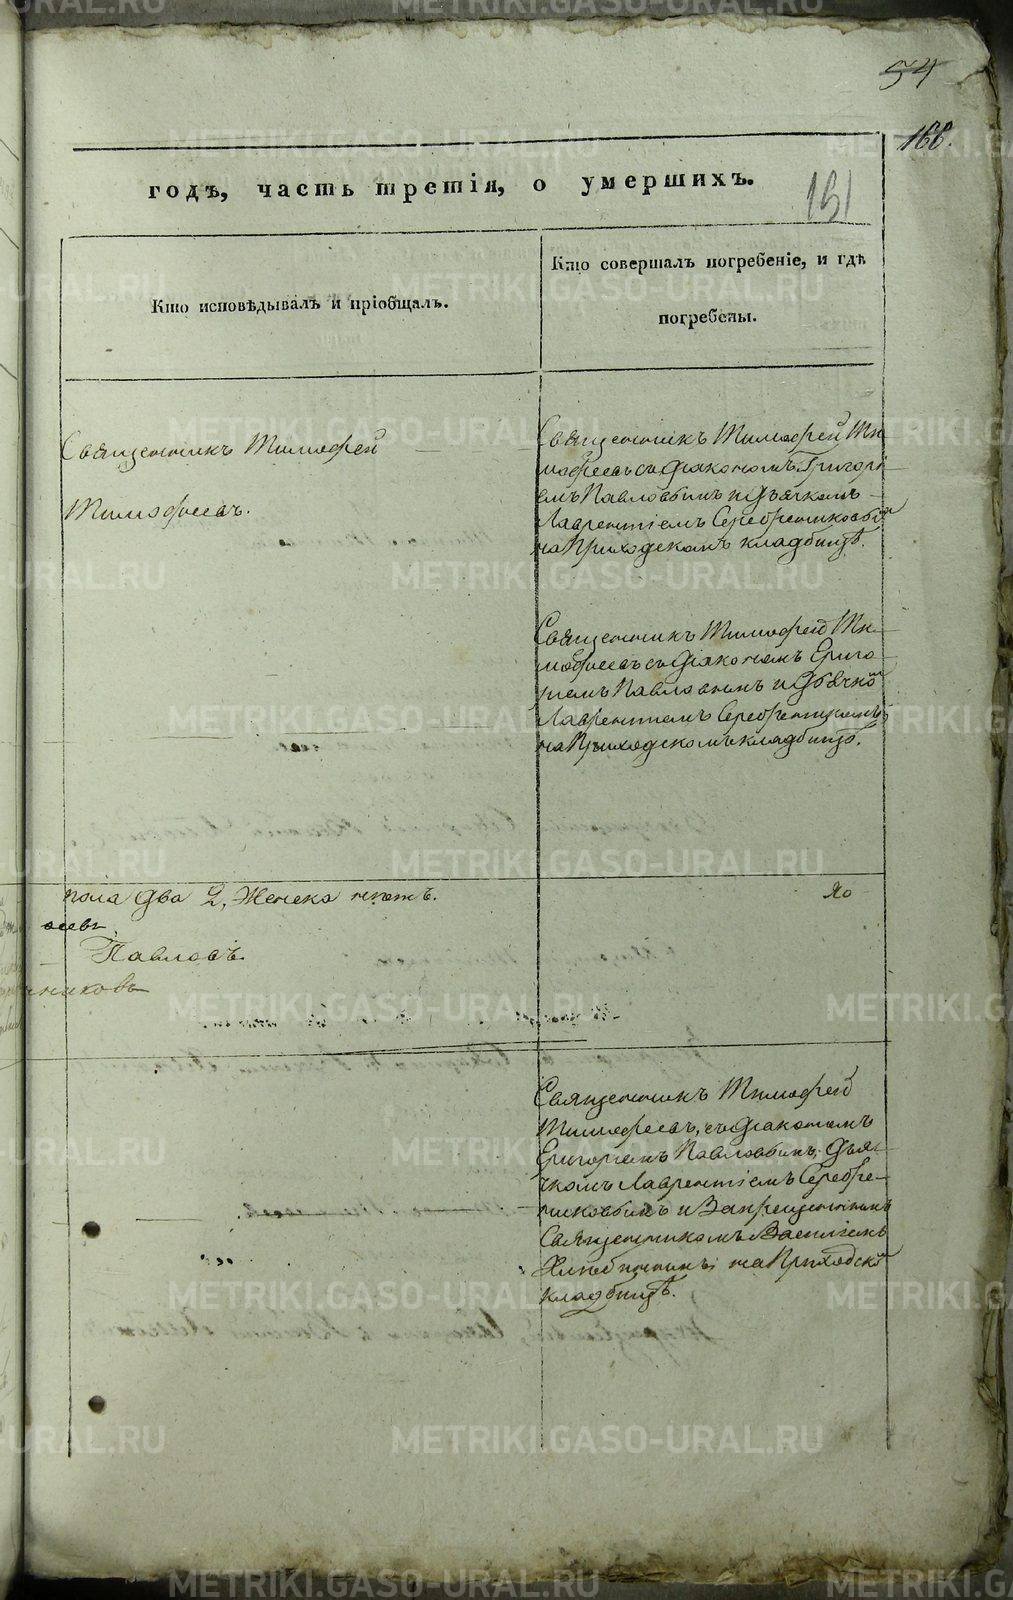 54
166.
годъ, часть третія, о умершихъ.
151
Кто исповѣдывалъ и пріобщалъ.
Кто совершалъ погребеніе, и гдѣ
погребены.
Священникъ Тимофей
Тимофеевъ.
Священникъ Тимофей Ти
мофеевъ съ діакономъ Григорі
емъ Павловымъ и дьячкомъ
Лаврентіемъ Серебрениковы
на Приходскомъ кладбищѣ.
Священникъ Тимофей Ти
мофеевъ съ діакономъ Григо
Павловымъ и дьячко
Лаврентіемъ
на Приходскомъ кладбищѣ.
пола два 2, Женска нѣтъ.
еевъ
Павловъ
никовъ
Священникъ Тимофей
Тимофеевъ, съ діакономъ
Григоріемъ Павловымъ, дья
чкомъ Лаврентіемъ Серебре
никовымъ и Запрещеннымъ
Священникомъ Василіемъ
на Приходско
кладбищѣ.
METRIKI.GASO-URAL.RU